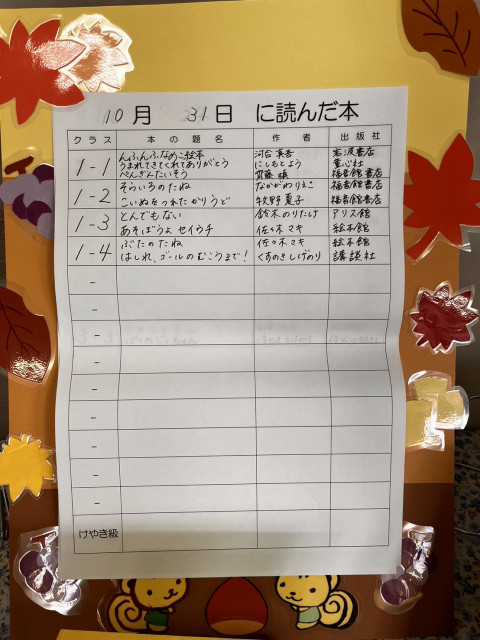 10月 31日 に読んだ本
クラス 本の題名 作者 出版社
1-1 んふんふなめこ絵本 河合真吾 岩波書店
うまれてきてくれてありがとう にしもとよう 童心社
ぺんぎんたいそう 齋藤槙 福音館書店
1-2 そらいろのたね なかがわりえこ 福音館書店
こいぬをつれたかりうど 牧野夏子 福音館書店
1-3 とんでもない 鈴木のりたけ アリス館
あそぼうよセイウチ 佐々木マキ 絵本館
1-4 ぶたのたね 佐々木マキ 絵本館
はしれ、ゴールのむこうまで! くすのきしげのり 講談社
-
-
-
-
-
-
-
-
-
けやき級